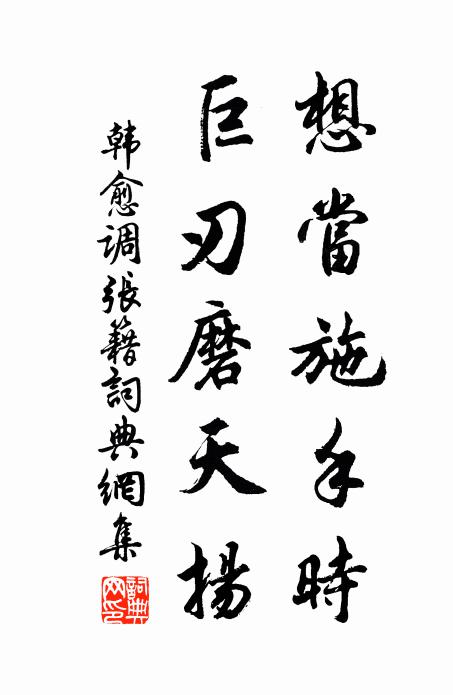 想當施手時
巨刃磨天揚
韩愈调張籍詞典網集
詞典網印